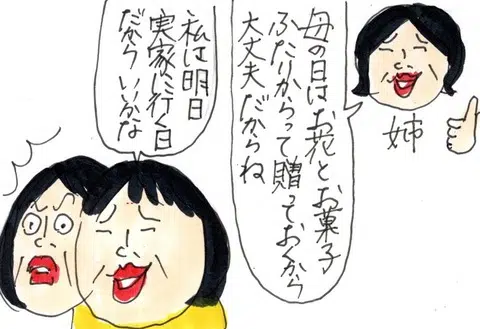 母の日はお花とお菓子
ふたりからって贈っておくから
大丈夫だからね
姉
私は明日
実家に行く日
だから いいかな